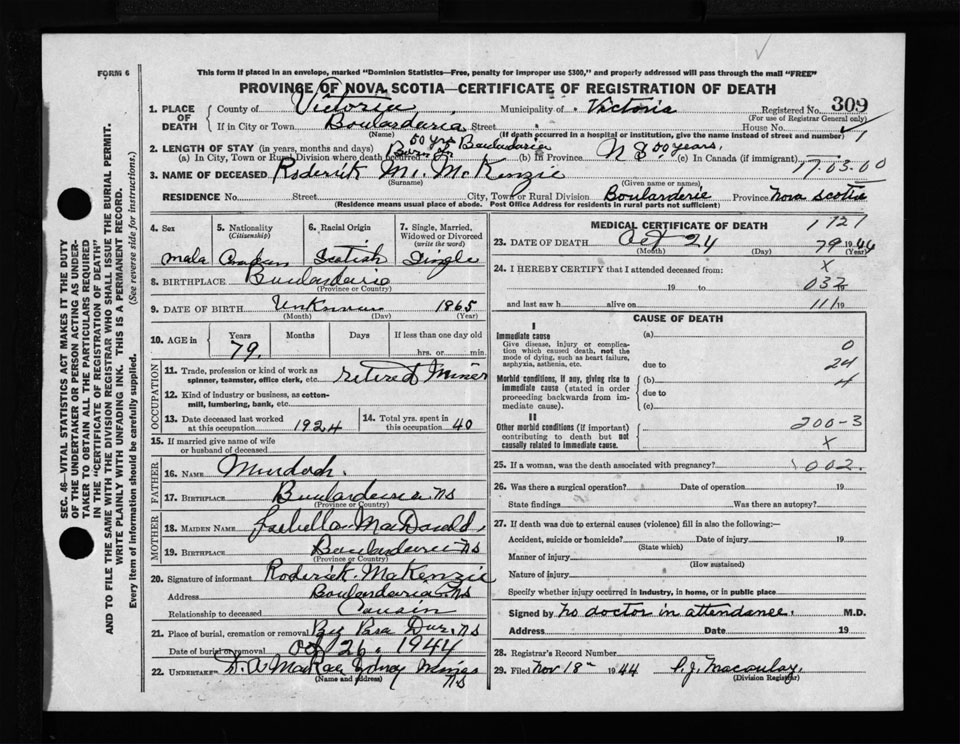 FORM 6
This form if placed in an envelope, marked "Dominion Statistics—Free, penalty for improper use $300," and properly addressed will pass through the mail "FREE"
PROVINCE OF NOVA SCOTIA—CERTIFICATE OF REGISTRATION OF DEATH
1. PLACE OF DEATH County of Victoria Municipality of Victoria Registered No. 309
(For use of Registrar General only)
If in City or Town Boulardaria Street House No.
(Name) (If death occurred in a hospital or institution, give the name instead of street and number) 1
2. LENGTH OF STAY (in years, months and days) 50 yrs Boulardaria
(a) In City, Town or Rural Division where death occurred (b) In Province N S 50 years, (c) In Canada (if immigrant)
17.03.00
3. NAME OF DECEASED Roderick M. McKenzie
(Surname) (Given name or names)
RESIDENCE No. Street City, Town or Rural Division Boularderie Province Nova Scotia
(Residence means usual place of abode. Post Office Address for residents in rural parts not sufficient)
SEC. 46—VITAL STATISTICS ACT MAKES IT THE DUTY
OF THE UNDERTAKER OR PERSON ACTING AS UNDER-
TAKER TO OBTAIN ALL THE PARTICULARS REQUIRED
IN THE "CERTIFICATE OF REGISTRATION OF DEATH"
AND TO FILE THE SAME WITH THE DIVISION REGISTRAR WHO SHALL ISSUE THE BURIAL PERMIT.
WRITE PLAINLY WITH UNFADING INK. THIS IS A PERMANENT RECORD.
Every item of information should be carefully supplied. (See reverse side for instructions.)
4. Sex 5. Nationality (Citizenship) 6. Racial Origin 7. Single, Married, Widowed or Divorced (write the word)
Male Scotish Single
8. BIRTHPLACE Boularderie
(Province or Country)
9. DATE OF BIRTH Unknown 1865
(Month) (Day) (Year)
10. AGE in Years Months Days If less than one day old
79. hrs. or min.
OCCUPATION
11. Trade, profession or kind of work as spinner, teamster, office clerk, etc. retired Miner
12. Kind of industry or business, as cotton-mill, lumbering, bank, etc.
13. Date deceased last worked at this occupation 1924 14. Total yrs. spent in this occupation 40
15. If married give name of wife or husband of deceased
FATHER
16. NAME Murdoch.
17. BIRTHPLACE Boulardaria NS
MOTHER
18. MAIDEN NAME Isabella MacDonald,
19. BIRTHPLACE Boularderie NS
(Province or Country)
20. Signature of informant Roderick McKenzie
Address Boulardaria NS
Relationship to deceased Cousin
21. Place of burial, cremation or removal NS
Date of burial or removal Oct 26. 1944
22. UNDERTAKER D. A MacRae Sydney Mines
(Name and address) NS
MEDICAL CERTIFICATE OF DEATH 1721
23. DATE OF DEATH Oct 24 79 1944
(Month) (Day) (Year)
24. I HEREBY CERTIFY that I attended deceased from: X
19 to 032 19
and last saw h alive on 111 19
CAUSE OF DEATH
I
Immediate cause (a)
Give disease, injury or complication which caused death, not the mode of dying, such as heart failure, asphyxia, asthenia, etc. due to
0
24
Morbid conditions, if any, giving rise to immediate cause (stated in order proceeding backwards from immediate cause). (b) 4
due to
(c)
II
Other morbid conditions (if important) contributing to death but not causally related to immediate cause. 200-3
X
25. If a woman, was the death associated with pregnancy? 002.
26. Was there a surgical operation? Date of operation 19
State findings Was there an autopsy?
27. If death was due to external causes (violence) fill in also the following:—
Accident, suicide or homicide? Date of injury 19
(State which)
Manner of injury
(How sustained)
Nature of injury
Specify whether injury occurred in industry, in home, or in public place
Signed by no doctor in attendance. M.D.
Address Date 19
28. Registrar's Record Number
29. Filed Nov 18th 1944 P.J. Macaulay.
(Division Registrar)